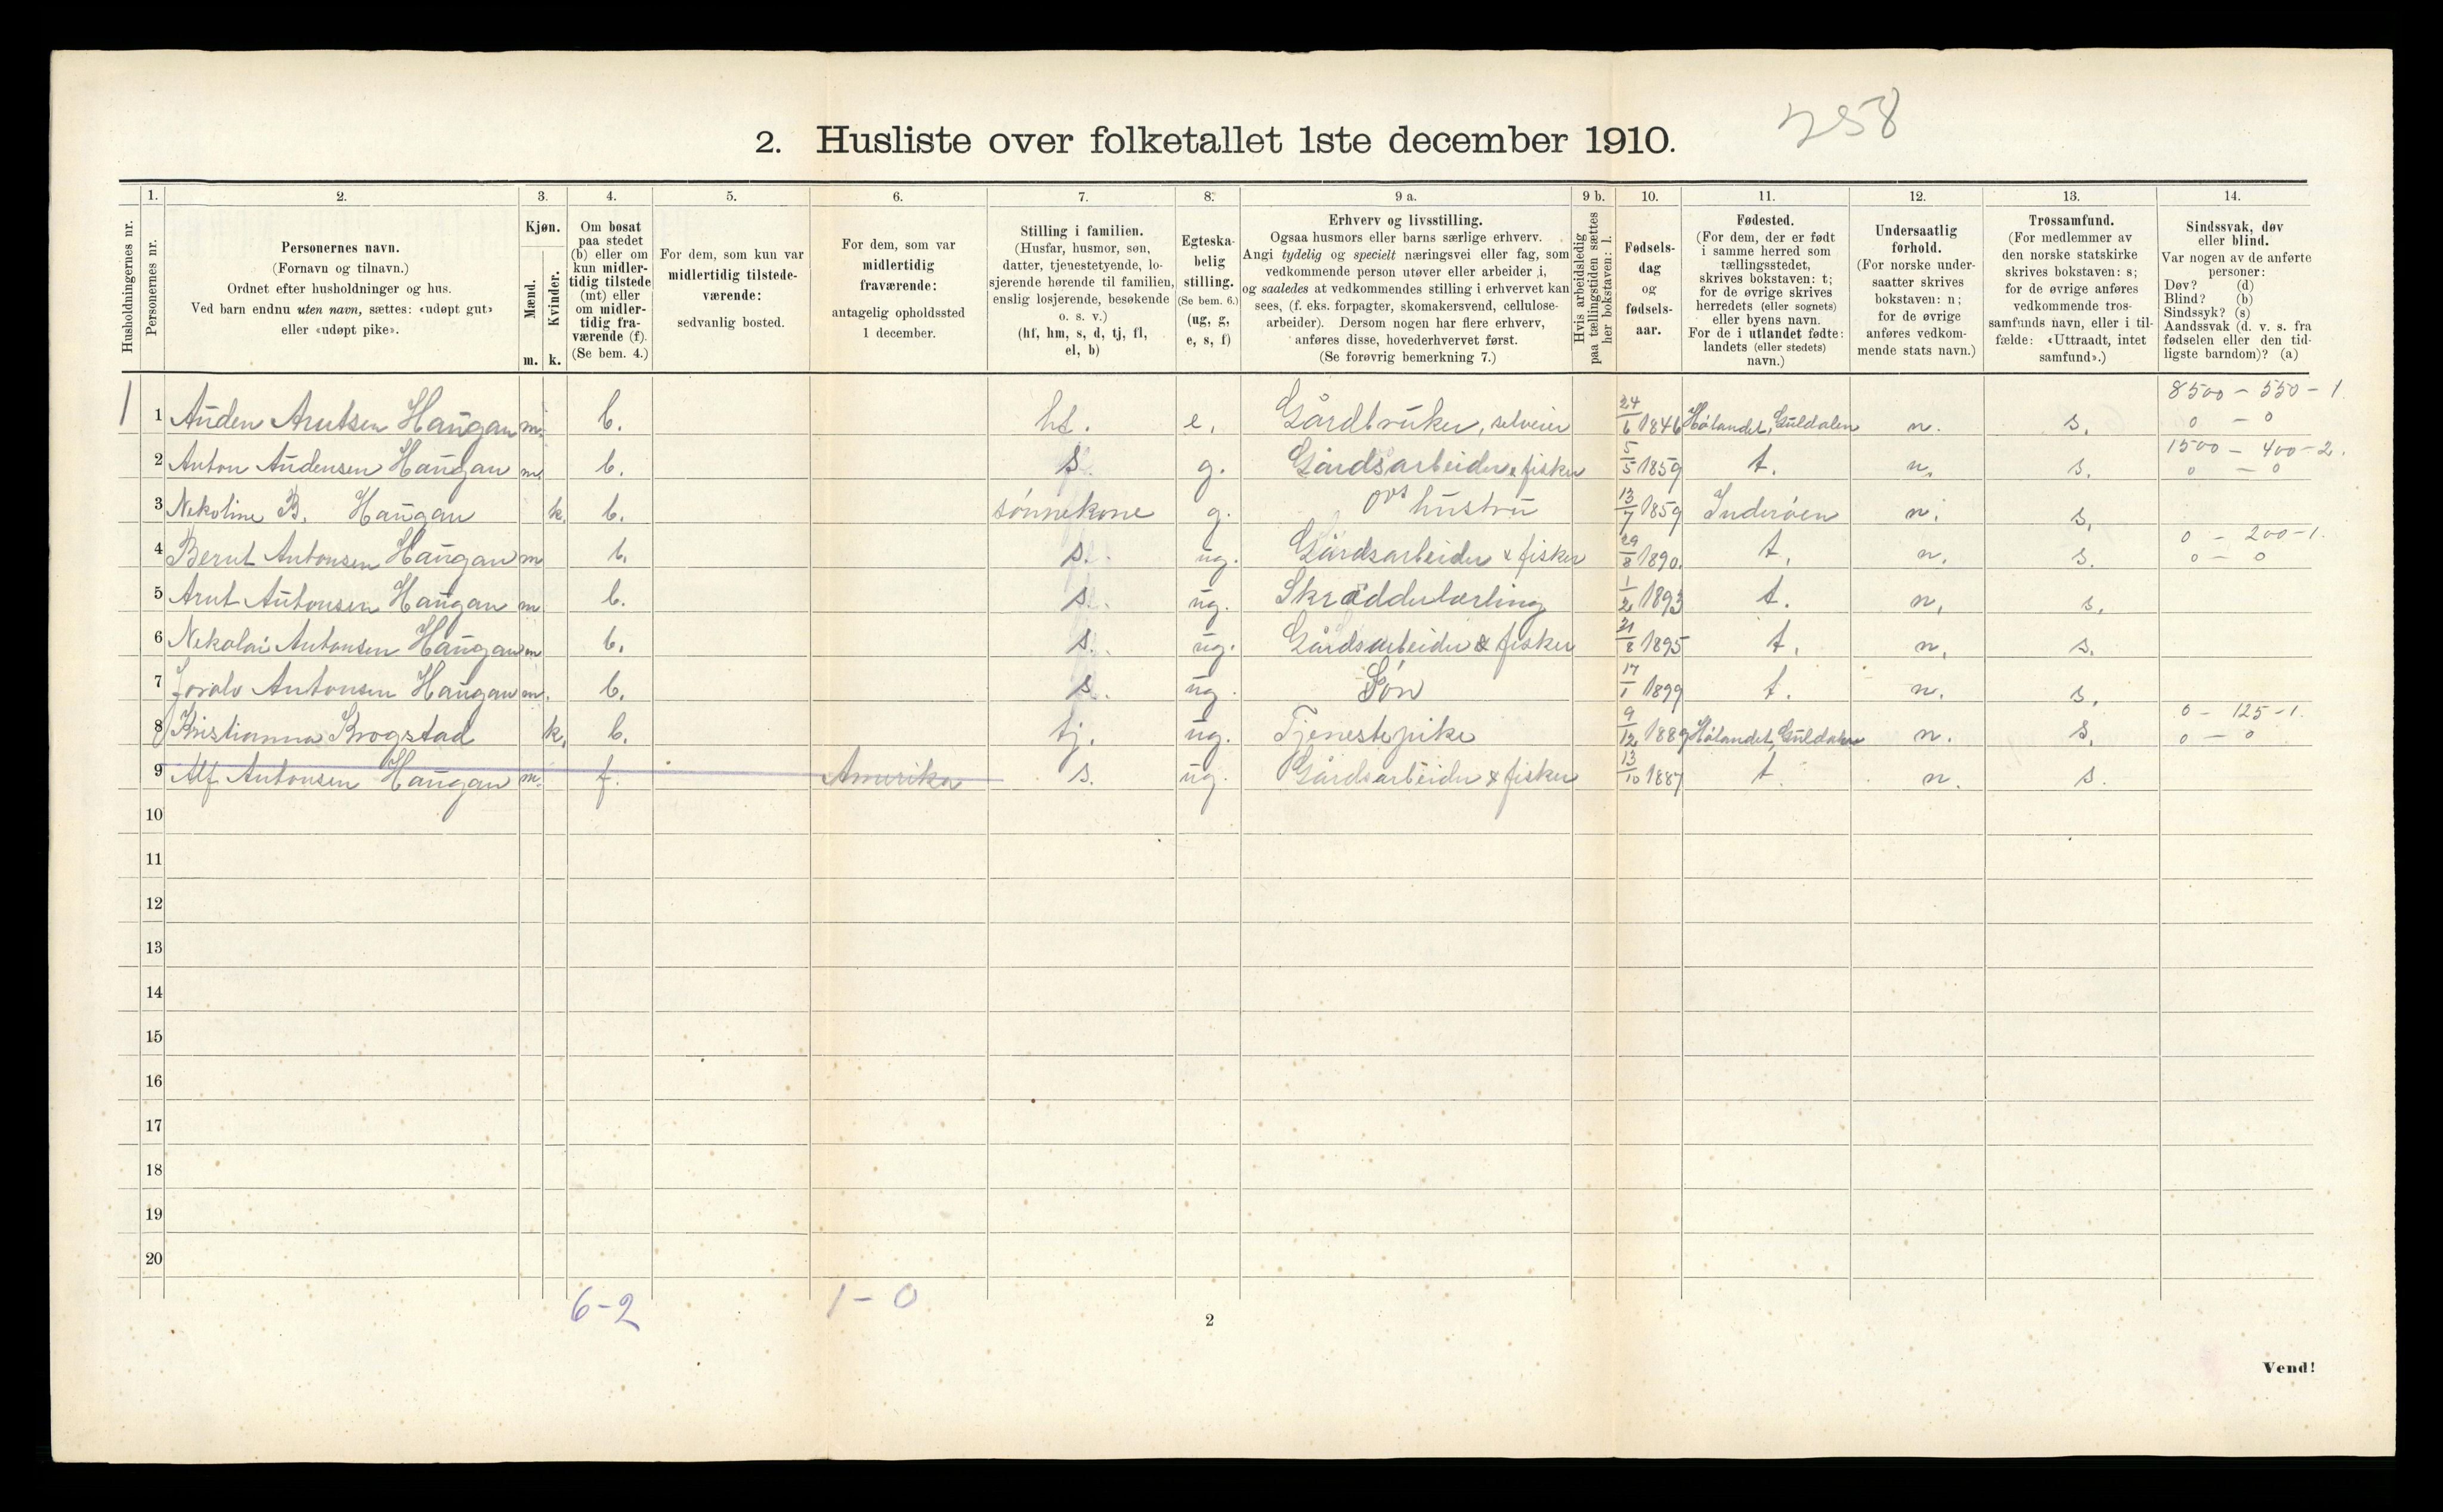 258
2. Husliste over folketallet 1ste december 1910.
Husholdningernes nr.
1. Personernes nr.
2. Personernes navn.
(Fornavn og tilnavn.)
Ordnet efter husholdninger og hus.
Ved barn endnu uten navn, sættes: «udøpt gut»
eller «udøpt pike».
3. Kjøn.
Mænd. m.
Kvinder. k.
4. Om bosat
paa stedet
(b) eller om
kun midler-
tidig tilstede
(mt) eller
om midler-
tidig fra-
værende (f).
(Se bem. 4.)
5. For dem, som kun var
midlertidig tilstede-
værende:
sedvanlig bosted.
6. For dem, som var
midlertidig
fraværende:
antagelig opholdssted
1 december.
7. Stilling i familien.
(Husfar, husmor, søn,
datter, tjenestetyende, lo-
sjerende hørende til familien,
enslig losjerende, besøkende
o. s. v.)
(hf, hm, s, d, tj, fl,
el, b)
8. Egteska-
belig
stilling.
(Se bem. 6.)
(ug, g,
e, s, f)
9 a. Erhverv og livsstilling.
Ogsaa husmors eller barns særlige erhverv.
Angi tydelig og specielt næringsvei eller fag, som
vedkommende person utøver eller arbeider i,
og saaledes at vedkommendes stilling i erhvervet kan
sees, (f. eks. forpagter, skomakersvend, cellulose-
arbeider). Dersom nogen har flere erhverv,
anføres disse, hovederhvervet først.
(Se forøvrig bemerkning 7.)
9 b. Hvis arbeidsledig
paa tællingstiden sættes
her bokstaven: l.
10. Fødsels-
dag
og
fødsels-
aar.
11. Fødested.
(For dem, der er født
i samme herred som
tællingsstedet,
skrives bokstaven: t;
for de øvrige skrives
herredets (eller sognets)
eller byens navn.
For de i utlandet fødte:
landets (eller stedets)
navn.)
12. Undersaatlig
forhold.
(For norske under-
saatter skrives
bokstaven: n;
for de øvrige
anføres vedkom-
mende stats navn.)
13. Trossamfund.
(For medlemmer av
den norske statskirke
skrives bokstaven: s;
for de øvrige anføres
vedkommende tros-
samfunds navn, eller i til-
fælde: «Uttraadt, intet
samfund».)
14. Sindssvak, døv
eller blind.
Var nogen av de anførte
personer:
Døv? (d)
Blind? (b)
Sindssyk? (s)
Aandssvak (d. v. s. fra
fødselen eller den tid-
ligste barndom)? (a)
8500 - 550 - 1.
1 1 Auden Arntsen Haugan m. b. hf. e. Gårdbruker, selveier 24/6 1846 Hølandet, Guldalen n. s. 0 - 0
1500 - 400 - 2.
2 Anton Audensen Haugan m. b. s. g. Gårdsarbeider & fisker 5/5 1859 t. n. s. 0 - 0
3 Nekoline B. Haugan k. b. sønnekone g. hustru 13/7 1859 Inderøen n. s.
0 - 200 - 1.
4 Bernt Antonsen Haugan m b. s. ug. Gårdsarbeider & fisker 29/8 1890. t. n. s. 0 - 0
5 Arnt Antonsen Haugan m. b. s. ug. Skrædderlærling 1/2 1893 t. n. s.
6 Nekolai Antonsen Haugan m b. s. ug. Gårdsarbeider & fisker 21/8 1895 t. n. s.
7 Antonsen Haugan m. b. s. ug. Søn 17/1 1899 t. n. s.
0 - 125 - 1.
8 Kristianna Krogstad k. b. tj. ug. Tjenestepike 9/12 1889 Hølandet, Guldalen n. s. 0 - 0
9 Alf Antonsen Haugan m. f. Amerika s. ug. Gårdsarbeider & fisker 13/10 1887 t. n. s.
10
11
12
13
14
15
16
17
18
19
20
6 - 2 1 - 0
2
Vend!